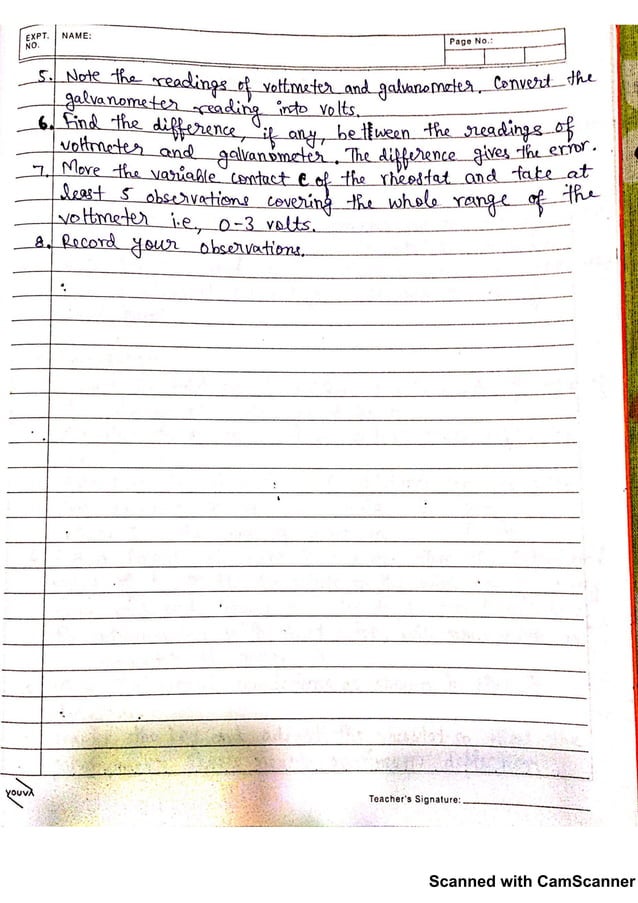 EXPT. NO.
NAME:
Page No.:
5. Note the readings of voltmeter and galvanometer. Convert the
galvanometer reading into volts.
6. Find the difference, if any, between the readings of
voltmeter and galvanometer. The difference gives the error.
7. Move the variable contact C of the rheostat and take at
least 5 observations covering the whole range of the
voltmeter i.e., 0-3 volts.
8. Record your observations.
youva
Teacher's Signature:
Scanned with CamScanner